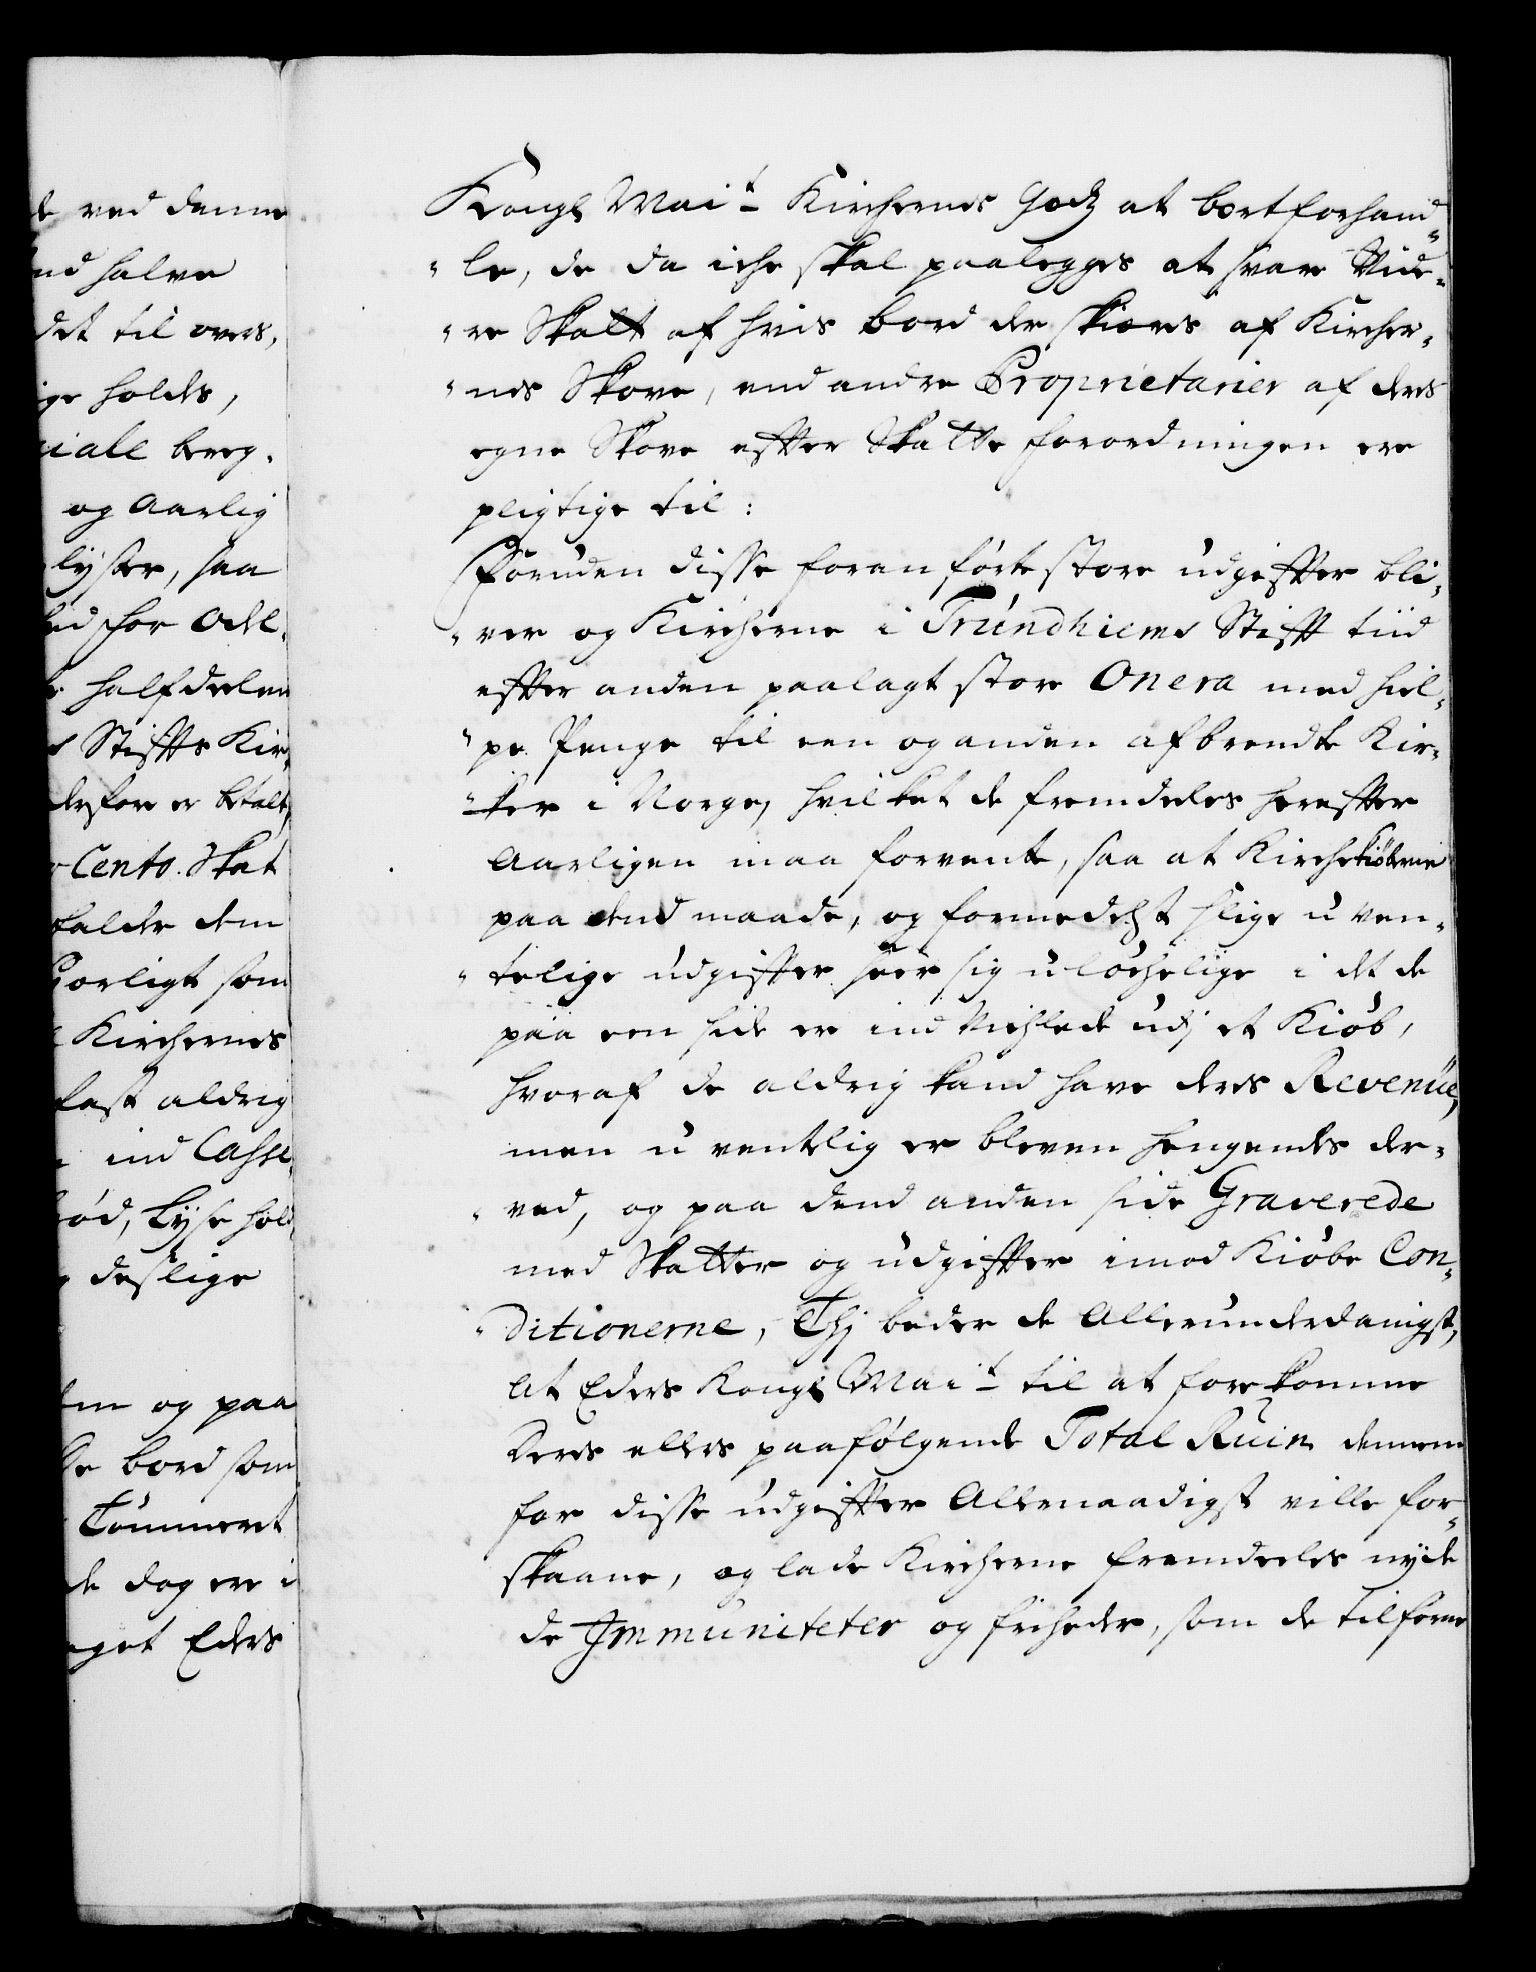 de ved denne
end halve
det til overs,
ige holds,
ciale berg,
og Aarlig
lyster, saa
hed for Odel,
halfdeelen
Stiffts Kir,
derfore er betalt,
Cento. Skat
falde dem
Kirchernes
fast aldrig
ind Casse,
ød, Lyse hold,
deslige
em og paa
bord som
Tømmeret
de dog ere i
get Eders
Kongl Mai.t Kirchernes Godz at bortforhand„
„le, de da iche skal paalegges at svare Vide„
„re Skatt af hvis bord der skiærs af Kircher„
„nes Skove, end andre Proprietarier af ders
egne Skove effter Skatte forordningen ere
pligtige til:
Foruden disse foranførte store udgiffter bli„
„ver og Kircherne i Trundhiems Stifft tiid
effter anden paalagt store Onera med hiel„
„pe Penge til een og anden afbrendte Kir„
„ker i Norge, hvilket de fremdeeles hereffter
Aarligen maa forvente, saa at Kirchekiøberne
paa dend maade, og formedelst slige u ven„
„telige udgiffter seer sig uløchelige i det de
paa een side er ind Vichlede udj et Kiøb,
hvoraf de aldrig kand have ders Revenüe,
men u ventelig er bleven hengendes der„
„ved, og paa dend anden side Graverede
med Skatter og udgiffter imod Kiøbe Con„
„ditionerne, Thj beder de Allerunderdanigst,
At Eders Kongl Mai.t til at forekomme
Deres ellers paafølgende Total Ruin dennem
for disse udgiffter Allernaadigst ville for„
skaane, og lade Kircherne fremdeeles nyde
de Immuniteter og friheder, som de tilforne